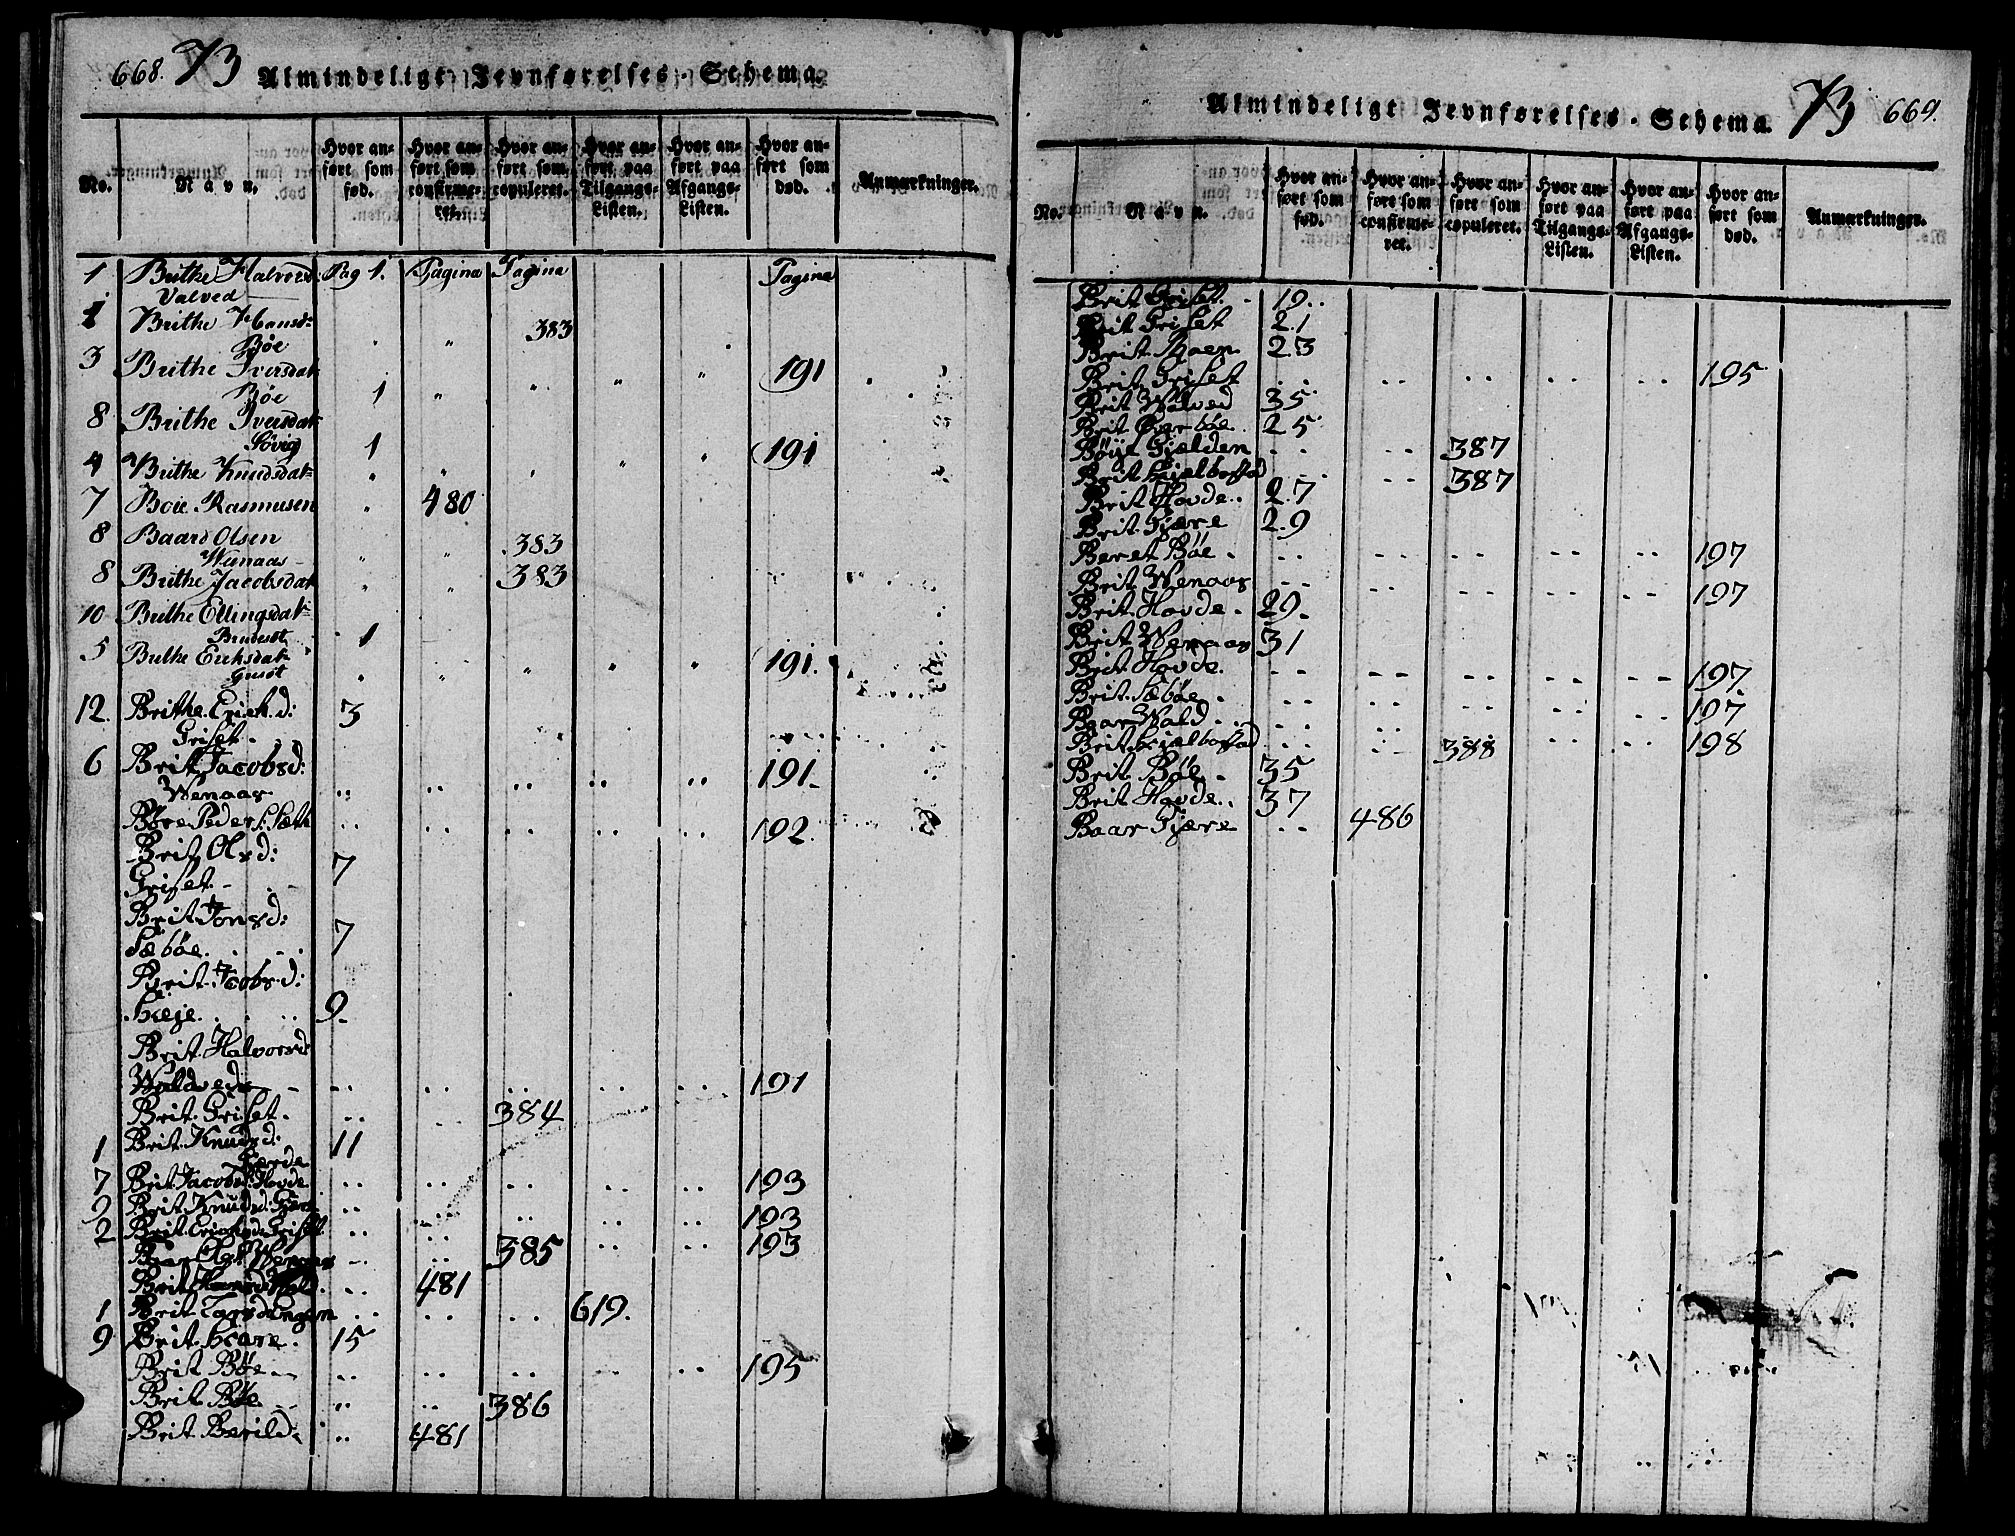 668. B Almindeligt Jevnførelses-Schema.
No. Navn. Hvor anført som fød. Hvor anført som confirmeret. Hvor anført som copuleret. Hvor anført paa Tilgangs-Listen. Hvor anført paa Afgangs-Listen. Hvor anført som død. Anmærkninger.
1 Brithe Halvorsd: Pag 1. Pagina Pagina Pagina
Valved
1 Brithe Hansd: 383
Bøe
3 Brithe Iversdat 191
Bøe 1
8 Brithe Iversdat
Søvig 1 191
4 Brithe Knudsdat
7 Boie Rasmusen 480
8 Baard Olsen 383
Wenaas
8 Brithe Jacobsdat 383
10 Brithe Ellingsdat
1
5 Brithe Erichsdat 191.
Griset
12. Brithe Erichd: 3
Griset.
6 Brit Jacobsd: 191.
Wenaas.
Børe Peders: Sæth 192.
Brit Olsd:
Griset 7
Brit Jonsd:
Sæbøe 7
Brit Jcobsd:
9.
Brit Halvorsd
Waldvede 191
Brit Griset. 384
1 Brit Knudsd: 11
7 Brit Jacobsd: Hovde 193
2 Brit Knudsd: Gjere 193
2 Brit Erichsd: Griset 193
Baar Ols: Wenaas 385
Brit 481
1 Brit Larsd: 619.
9 Brit 15
Brit Bøe 195
Brit Bøe 386
Brit Berild 481
Almindeligt Jevnførelses-Schema. B 669.
No. Navn. Hvor anført som fød. Hvor anført som confirmeret. Hvor anført som copuleret. Hvor anført paa Tilgangs-Listen. Hvor anført paa Afgangs-Listen. Hvor anført som død. Anmærkninger.
Brit Griset. 19.
Brit Griset 21
Brit Moen 23
Brit Griset 195
Brit Walved 35
Brit Øverbøe 25
Bøyl Gjelden 387
Brit Hjelbostad 387
Brit Hovde. 27
Brit Gjære 29
Beret Bøe. 197
Brit Wenaas 197
Brit Hovde. 29.
Brit Wenaas 31
Brit Hovde. 197
Brit Sæbøe. 197
Baar Wald. 198
Brit Hjelbostad 388
Brit Bøe. 35
Brit Hovde. 37
Baar Gjære 486